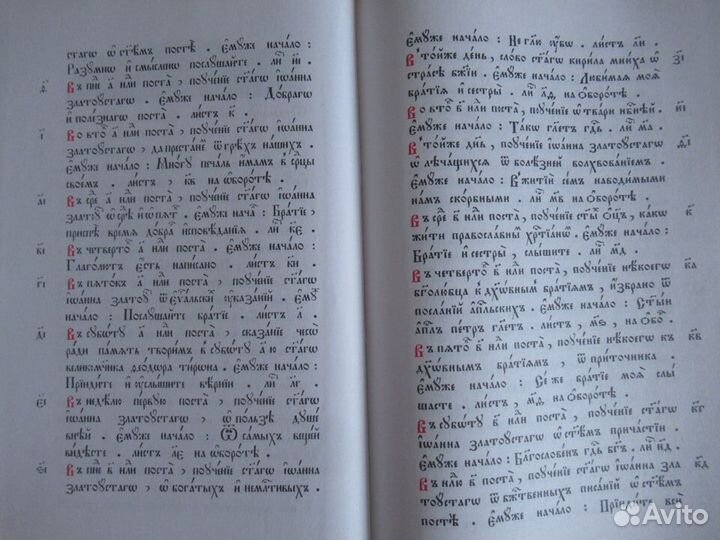 стагѡ ѡ҆ ст҃ѣмъ постѣ̀ . є҆мꙋ́же нача́ло :
Разꙋ́мнѡ и҆ смы́сленѡ послꙋ́шайте . ли́
Въ п҃не а҃ нл҃и поста̀ , поꙋче́нїе ст҃а́гѡ і҆ѡа́нна
златоꙋ́стагѡ . є҆мꙋ́же нача́ло : До́брагѡ
и҆ поле́знагѡ поста̀ . ли́стъ к҃ .
Во вто́ а҃ нл҃и поста̀ , поꙋче́нїе ст҃а́гѡ і҆ѡа́нна
златоꙋ́стагѡ , да преста́нѐ ѿ грѣ́хъ на́шихъ .
є҆мꙋ́же нача́ло : Мно́гꙋ печа́ль и҆́мамъ в ср҃цы
свое́мъ . ли́стъ , к҃в на ѡ҆боро́тѣ .
Въ сре́ а҃ нл҃и поста̀ , поꙋче́нїе ст҃а́гѡ і҆ѡа́нна
є҆мꙋ́же нача̀ : Бра́тїе ,
приспѣ̀ вре́мѧ до́бра и҆сповѣ́данїѧ . ли́ к҃е .
Въ четверто́ а҃ нл҃и поста̀ . є҆мꙋ́же нача́ло :
Глаго́листъ є҆́сть напи́сано . ли́стъ к҃и .
Въ пѧто́къ а҃ нл҃и поста̀ , поꙋче́нїе ст҃а́гѡ
і҆ѡа́нна златоꙋ́ ѿ є҆ѵⷢ҇а́льски оу҆каза́нїй . є҆мꙋ́
нача́ло : Послꙋ́шайте бра́тїе . ли́ л҃ .
Въ сꙋббѡ́тꙋ а҃ нл҃и поста̀ , сказа́нїе чесѡ̀
ра́ди па́мѧть твори́мъ в сꙋббѡ́тꙋ а҃ю ст҃а́гѡ
великомꙋ́чнка ѳео́дѡра ти́рѡна . є҆мꙋ́же нача́ло :
Прїиди́те и҆ оу҆слы́шите вѣ́рнїи . ли́ л҃г .
Въ недѣ́лю пе́рвꙋю поста̀ , поꙋче́нїе ст҃а́гѡ
і҆ѡа́нна златоꙋ́стагѡ , ѡ҆ по́льзѣ дꙋше́
внѣ́й . є҆мꙋ́же нача́ло : Ѿ са́мыхъ ве́щїй
ви́дѣсте . ли́стъ л҃е на ѡ҆боро́тѣ .
Въ п҃не в҃ нл҃и поста̀ , поꙋче́нїе ст҃а́гѡ і҆ѡа́нна
златоꙋ́стагѡ , ѡ҆ бога́тыхъ и҆ нема́тивыхъ .
є҆мꙋ́же нача́ло : Не гл҃ю сꙋ́бѡ . ли́стъ л҃и .
В то́йже де́нь , сло́во ст҃а́гѡ кири́ла мни́ха ѡ҆
стра́сѣ бж҃їи . є҆мꙋ́же нача́ло : Люби́маѧ моѧ̀
бра́тїѧ и҆ се́стры . ли́ л҃д , на ѡ҆боро́тѣ .
Во вто́ в҃ нл҃и поста̀ , поꙋче́нїе ѡ҆ тва́ри нб҃нѣ́й .
є҆мꙋ́же нача́ло : Та́кѡ гл҃етъ гд҇ь . ли́ м҃а .
В то́йже дн҃ь , поꙋче́нїе і҆ѡа́нна златоꙋ́стагѡ
ѡ҆ лѣча́щихсѧ ѿ болѣ́зней волхвова́нїемъ .
є҆мꙋ́же нача́ло : В житїѝ се́мъ наводи́мыми
на́мъ ско́рбными . ли́ м҃в на ѡ҆боро́тѣ .
Въ сре́ в҃ нл҃и поста̀ , поꙋче́нїе ст҃ы́ ѻ҆ц҃ъ , ка́кѡ
жи́ти правосла́внымъ хрⷭ҇тїа́нѡ . є҆мꙋ́же нача́ло :
Бра́тїе и҆ се́стры слы́шите . ли́ м҃д .
Въ четверто́ в҃ нл҃и поста̀ , поꙋче́нїе нѣ́коегѡ
бг҃олю́бца к дꙋхо́внымъ бра́тїѧмъ , и҆збра́но ѿ
посла́нїй а҆п҇льскихъ . є҆мꙋ́же нача́ло : Ст҃ы́й
а҆п҇лъ пе́тръ гл҃етъ . ли́стъ , м҃ѕ , на ѡ҆боро̀ .
Въ пѧто̀ в҃ нл҃и поста̀ , поꙋче́нїе нѣ́коегѡ к
дꙋхо́внымъ бра́тїѧмъ , ѿ при́точника .
є҆мꙋ́же нача́ло : Се́ же бра́тїе моѧ̀ слы́
шасте . ли́стъ , м҃д , на ѡ҆боро́тѣ .
Въ сꙋббѡ́тꙋ в҃ нл҃и поста̀ , поꙋче́нїе ст҃а́гѡ
і҆ѡа́нна златоꙋ́стагѡ ѡ҆ ст҃ѣ́мъ прича́стїи .
є҆мꙋ́же нача́ло : Благослове́нъ гд҇ь бг҃ъ . ли́ н҃д .
Въ нл҃ю в҃ поста̀ , поꙋче́нїе ст҃а́гѡ і҆ѡа́нна зла
тоꙋ́стагѡ ѿ бж҃е́ственныхъ писа́нїй ѡ҆ ст҃ѣ́мъ
постѣ̀ . є҆мꙋ́же нача́ло : Прїиди́те всѝ
Avito